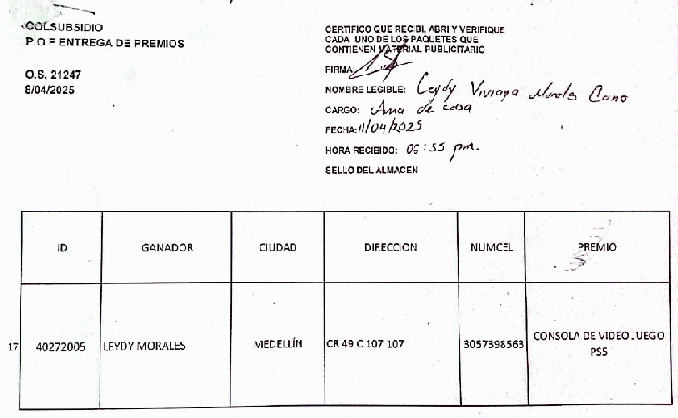 COLSUBSIDIO
P.O.P ENTREGA DE PREMIOS
O.S. 21247
8/04/2025
CERTIFICO QUE RECIBI, ABRI Y VERIFIQUE
CADA UNO DE LOS PAQUETES QUE
CONTIENEN MATERIAL PUBLICITARIO
FIRMA
NOMBRE LEGIBLE: Leydy Viviana Morales Cano
CARGO: Ama de casa
FECHA: 11/04/2025
HORA RECIBIDO: 05:55 pm.
SELLO DEL ALMACEN
ID GANADOR CIUDAD DIRECCION NUMCEL PREMIO
17 40272005 LEYDY MORALES MEDELLÍN CR 49 C 107 107 3057398563 CONSOLA DE VIDEOJUEGO
PS5